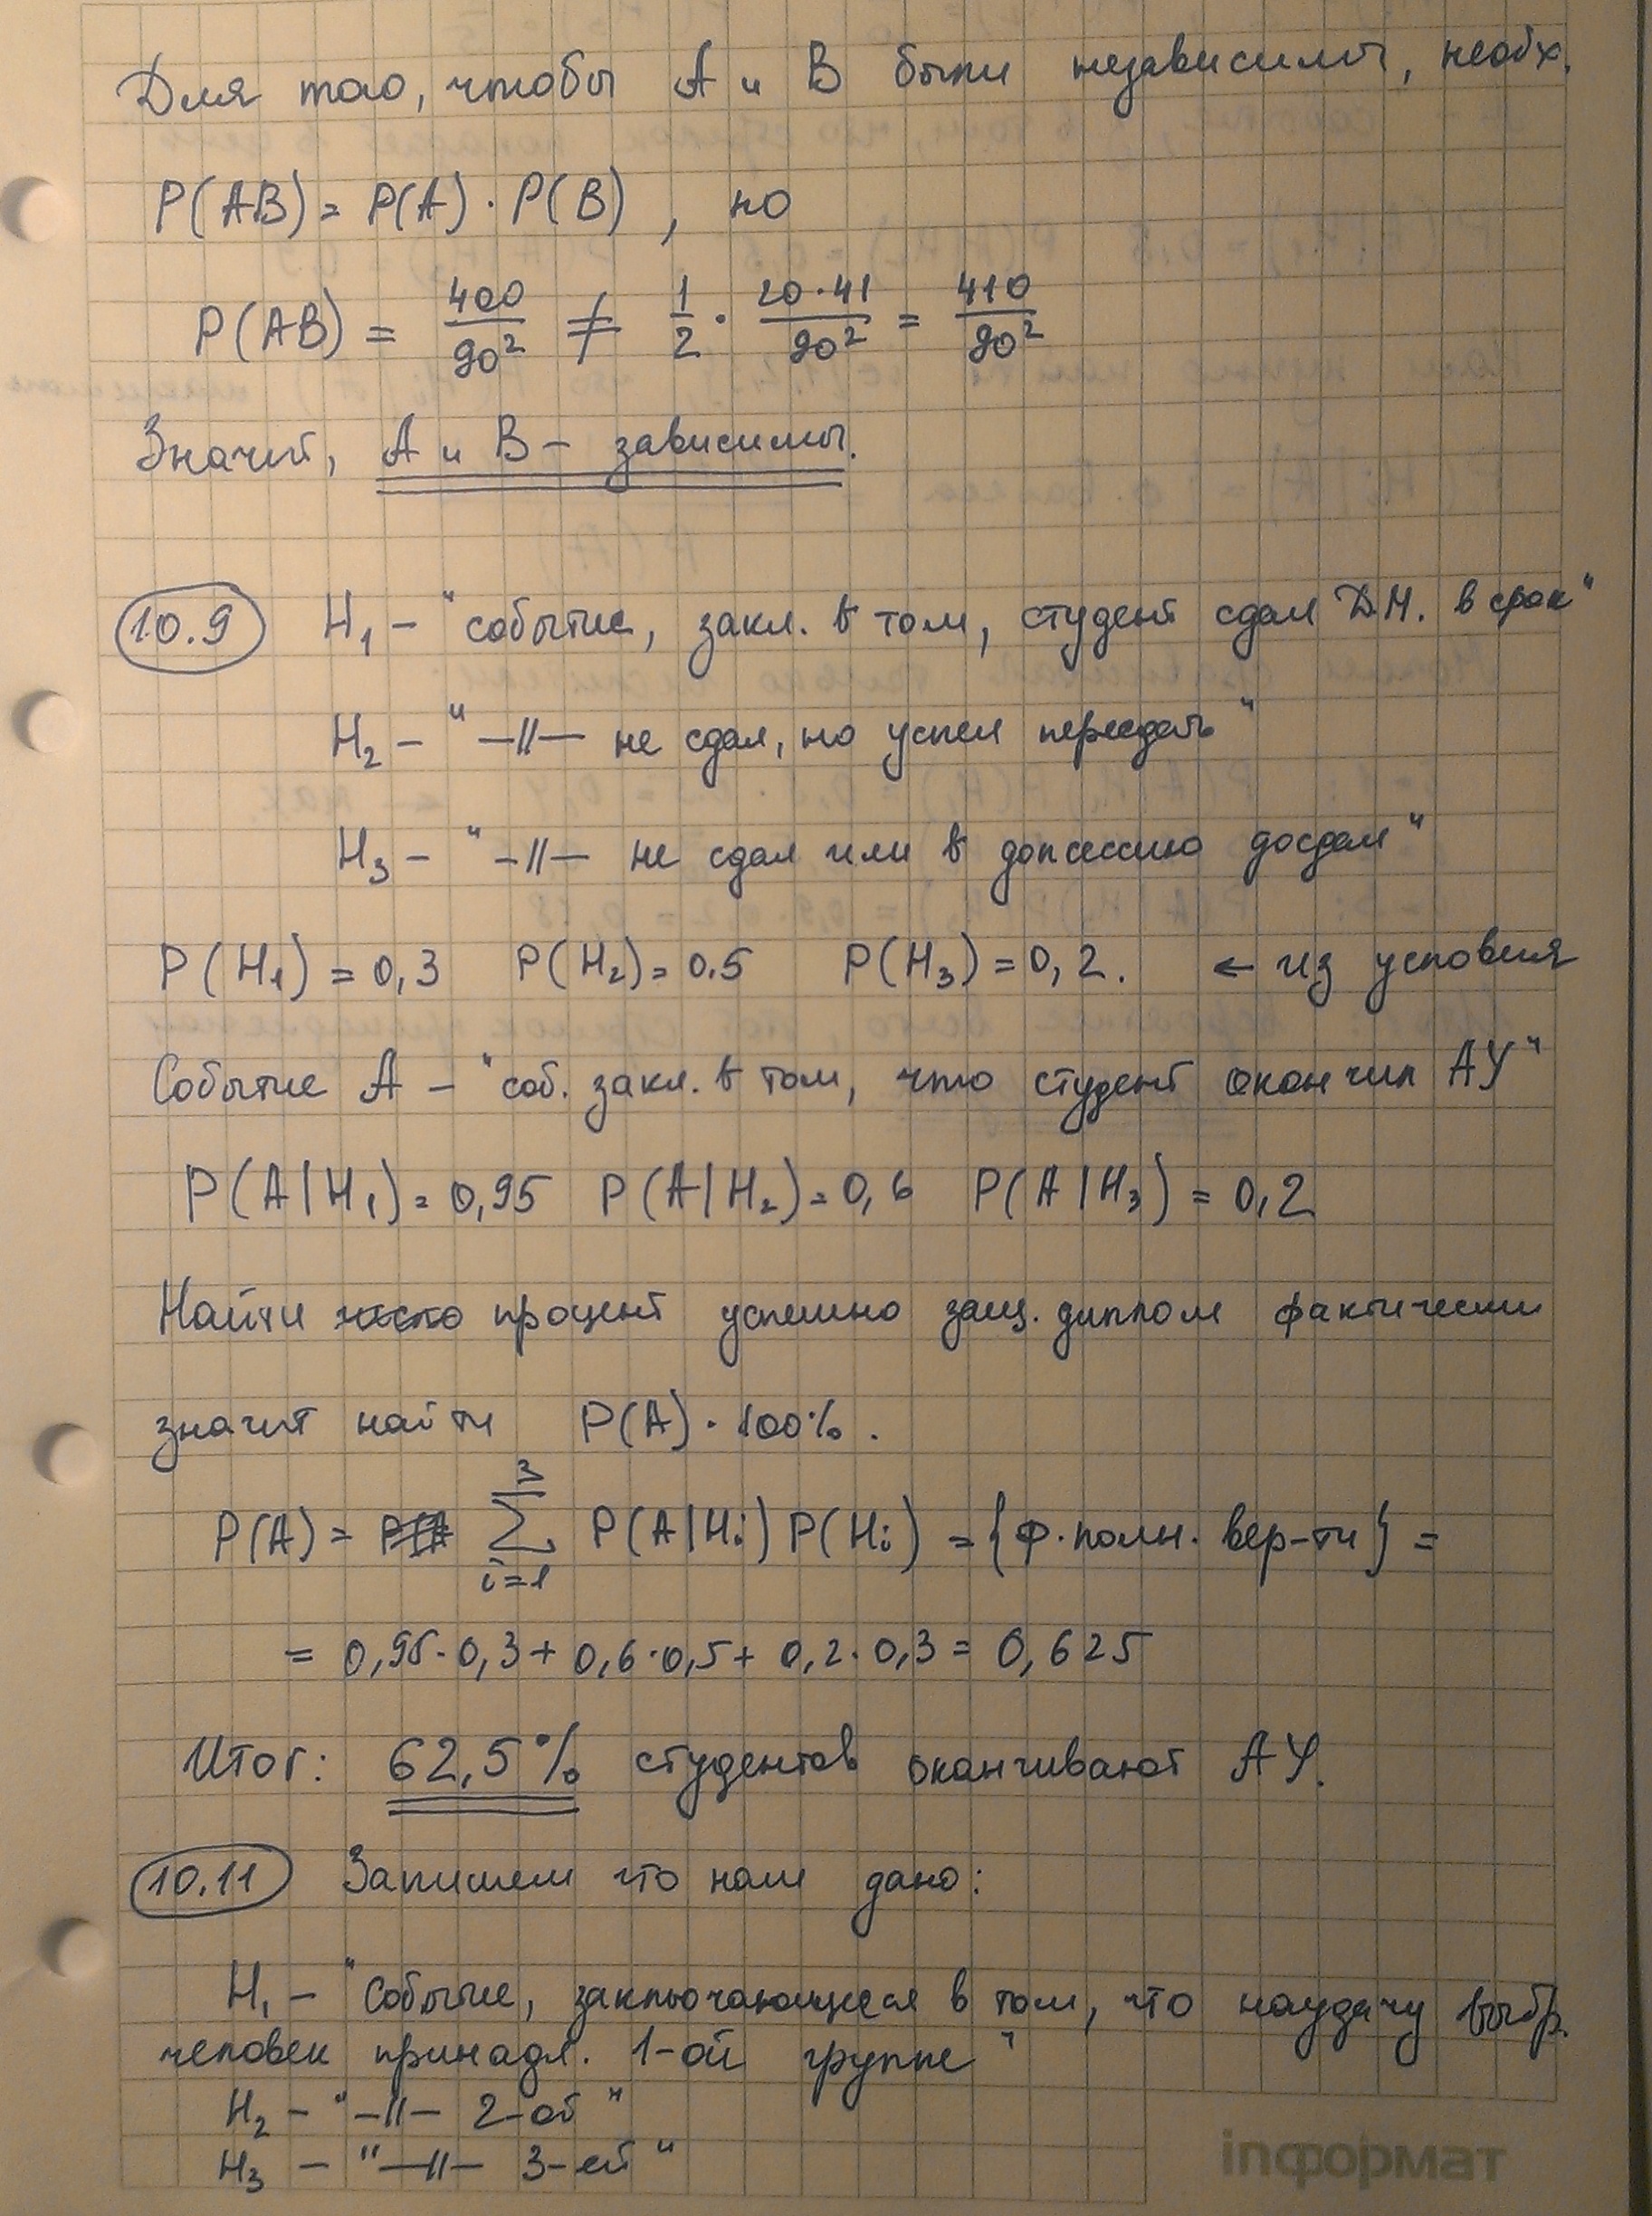 Для того, чтобы A и B были независимы, необх.
P(AB) = P(A) · P(B) , но
P(AB) = 400/90² ≠ 1/2 · 20·41/90² = 410/90²
Значит, A и B – зависимы.
10.9 H₁ – "событие, закл. в том, студент сдал Д.М. в срок"
H₂ – " –//– не сдал, но успел пересдать"
H₃ – " –//– не сдал или в допсессию досдал"
P(H₁) = 0,3 P(H₂) = 0.5 P(H₃) = 0,2. ← из условия
Событие A – "соб. закл. в том, что студент окончил АУ"
P(A|H₁) = 0,95 P(A|H₂) = 0,6 P(A|H₃) = 0,2
Найти процент успешно защ. диплом фактически
значит найти P(A) · 100%.
P(A) = ∑ᵢ₌₁³ P(A|Hᵢ) P(Hᵢ) = {ф. полн. вер-ти} =
= 0,95·0,3 + 0,6·0,5 + 0,2·0,3 = 0,625
Итог: 62,5% студентов оканчивают АУ.
10.11 Запишем что нам дано:
H₁ – "событие, заключающееся в том, что наудачу выбр.
человек принадл. 1-ой группе"
H₂ – " –//– 2-ой "
H₃ – " –//– 3-ей "
inформат